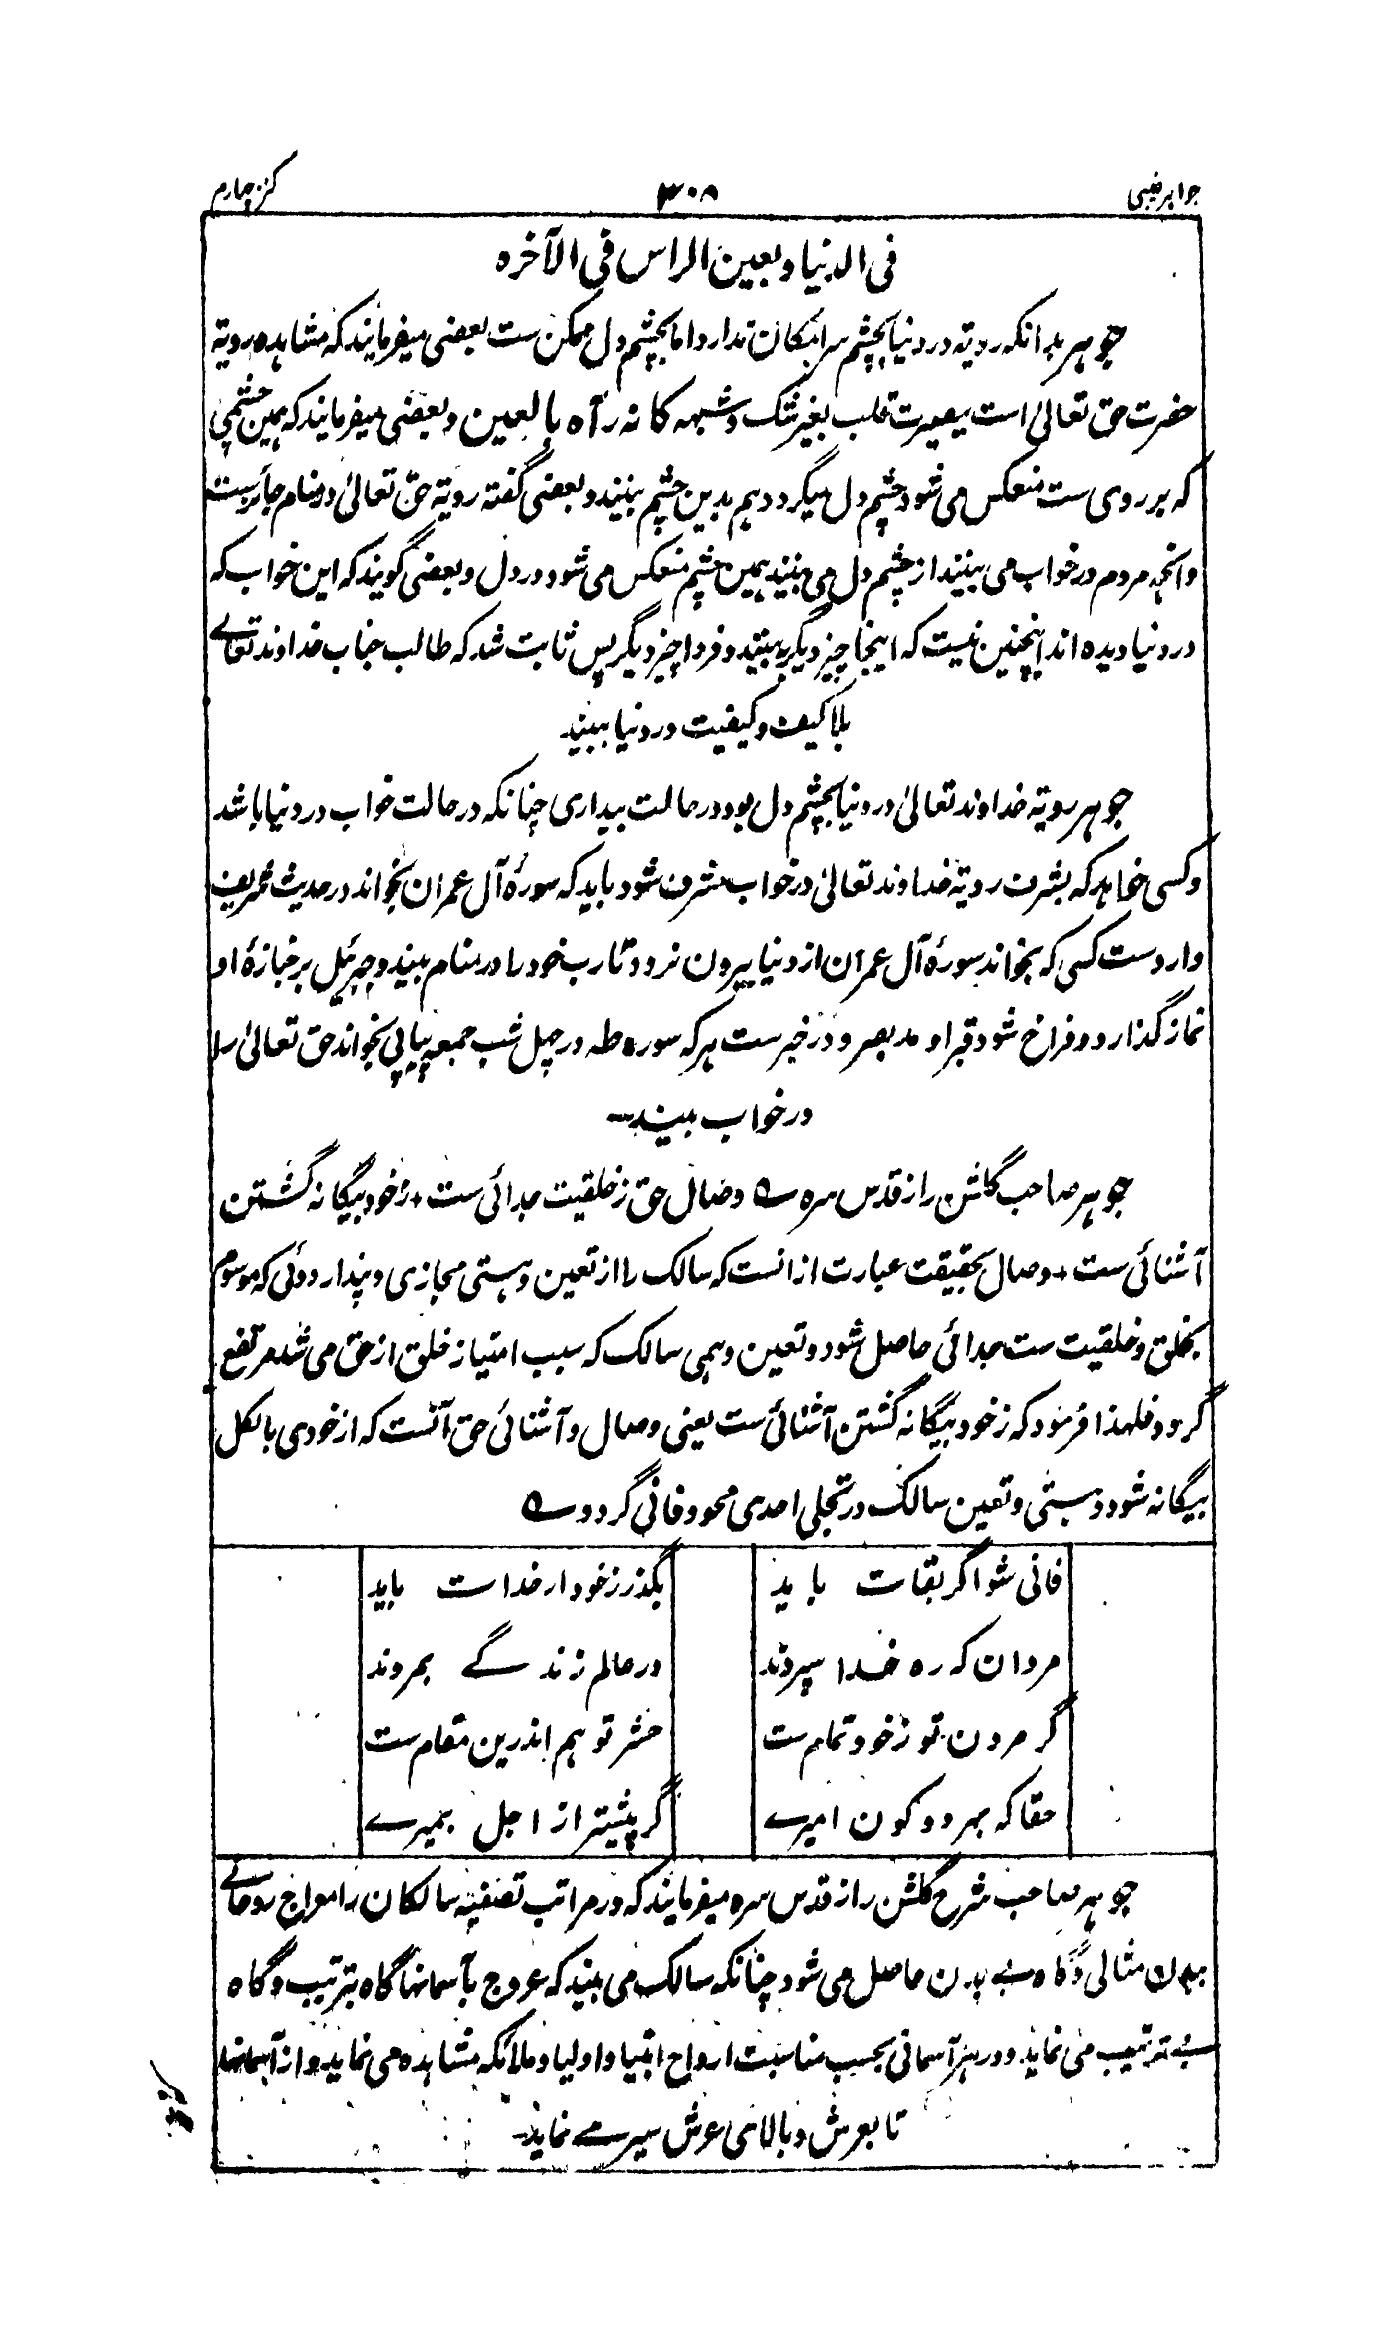 جواهر غیبی ۳۰۸ کنز چهارم
فی الدنیا و بعین الراس فی الآخره
جوهر بدانکه رویة در دنیا بچشم سر امکان ندارد اما بچشم دل ممکن ست بعضی میفرمایند که مشاهده رویة
حضرت حق تعالیٰ است ببصیرت قلب بغیر شک و شبهه کانه رآه بالعین و بعضی میفرمایند که همین چشمی
که بر روی ست منعکس می شود چشم دل میگردد هم بدین چشم بینند و بعضی گفته رویة حق تعالیٰ در منام جائزست
و انچه مردم در خواب می بینند از چشم دل می بینند همین چشم منعکس می شود در دل و بعضی گویند که این خواب که
در دنیا دیده اند اینچنین نیست که اینجا چیز دیگر ببینند و فردا چیز دیگر پس ثابت شد که طالب جناب خداوند تعالے
بلا کیف و کیفیت در دنیا ببیند
جوهر رویة خداوند تعالیٰ در دنیا بچشم دل بود در حالت بیداری چنانکه در حالت خواب در دنیا باشد
و کسی خواهد که بشرف رویة خداوند تعالیٰ در خواب مشرف شود باید که سورۂ آل عمران بخواند در حدیث شریف
وارد ست کسی که بخواند سورۂ آل عمران از دنیا بیرون نرود تا رب خود را در منام بیند و جبرئیل بر جنازۂ او
نماز گذارد و فراخ شود قبر او مد بصر و در خبر ست هر که سوره طه در چهل شب جمعه پیاپی بخواند حق تعالیٰ را
در خواب بیند
جوهر صاحب گلشن راز قدس سره ؎ وصال حق ز خلقیت جدائی ست + ز خود بیگانه گشتن
آشنائی ست + وصال بحقیقت عبارت از انست که سالک را از تعین و هستی مجازی و پندار دوئی که موسوم
بخلق و خلقیت ست جدائی حاصل شود و تعین وهمی سالک که سبب امتیاز خلق از حق می شد مرتفع
گردد فلهذا فرمود که ز خود بیگانه گشتن آشنائی ست یعنی وصال و آشنائی حق آنست که از خودی بالکل
بیگانه شود و هستی و تعین سالک در تجلی احدی محو و فانی گردد ؎
فانی شو اگر بقات باید بگذر ز خود ار خدات باید
مردان که ره خدا سپردند در عالم زندگے بمردند
گر مردن تو ز خود تمام ست حشر تو هم اندرین مقام ست
حقا که بهر دو کون امیرے گر پیشتر از اجل بمیرے
جوهر صاحب شرح گلشن راز قدس سره میفرمایند که در مراتب تصفیه سالکان را معراج روحانے
ببدن مثالی و گاه بے بدن حاصل می شود چنانکه سالک می بیند که عروج بآسمانها گاه بترتیب و گاه
بے ترتیب می نماید و در هر آسمانی بحسب مناسبت ارواح انبیا و اولیا و ملائکه مشاهده می نماید و از آسمانها
تا بعرش و بالای عرش سیر مے نماید